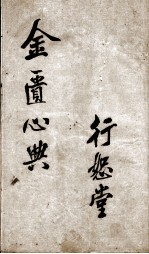 金匱心典
行恕堂